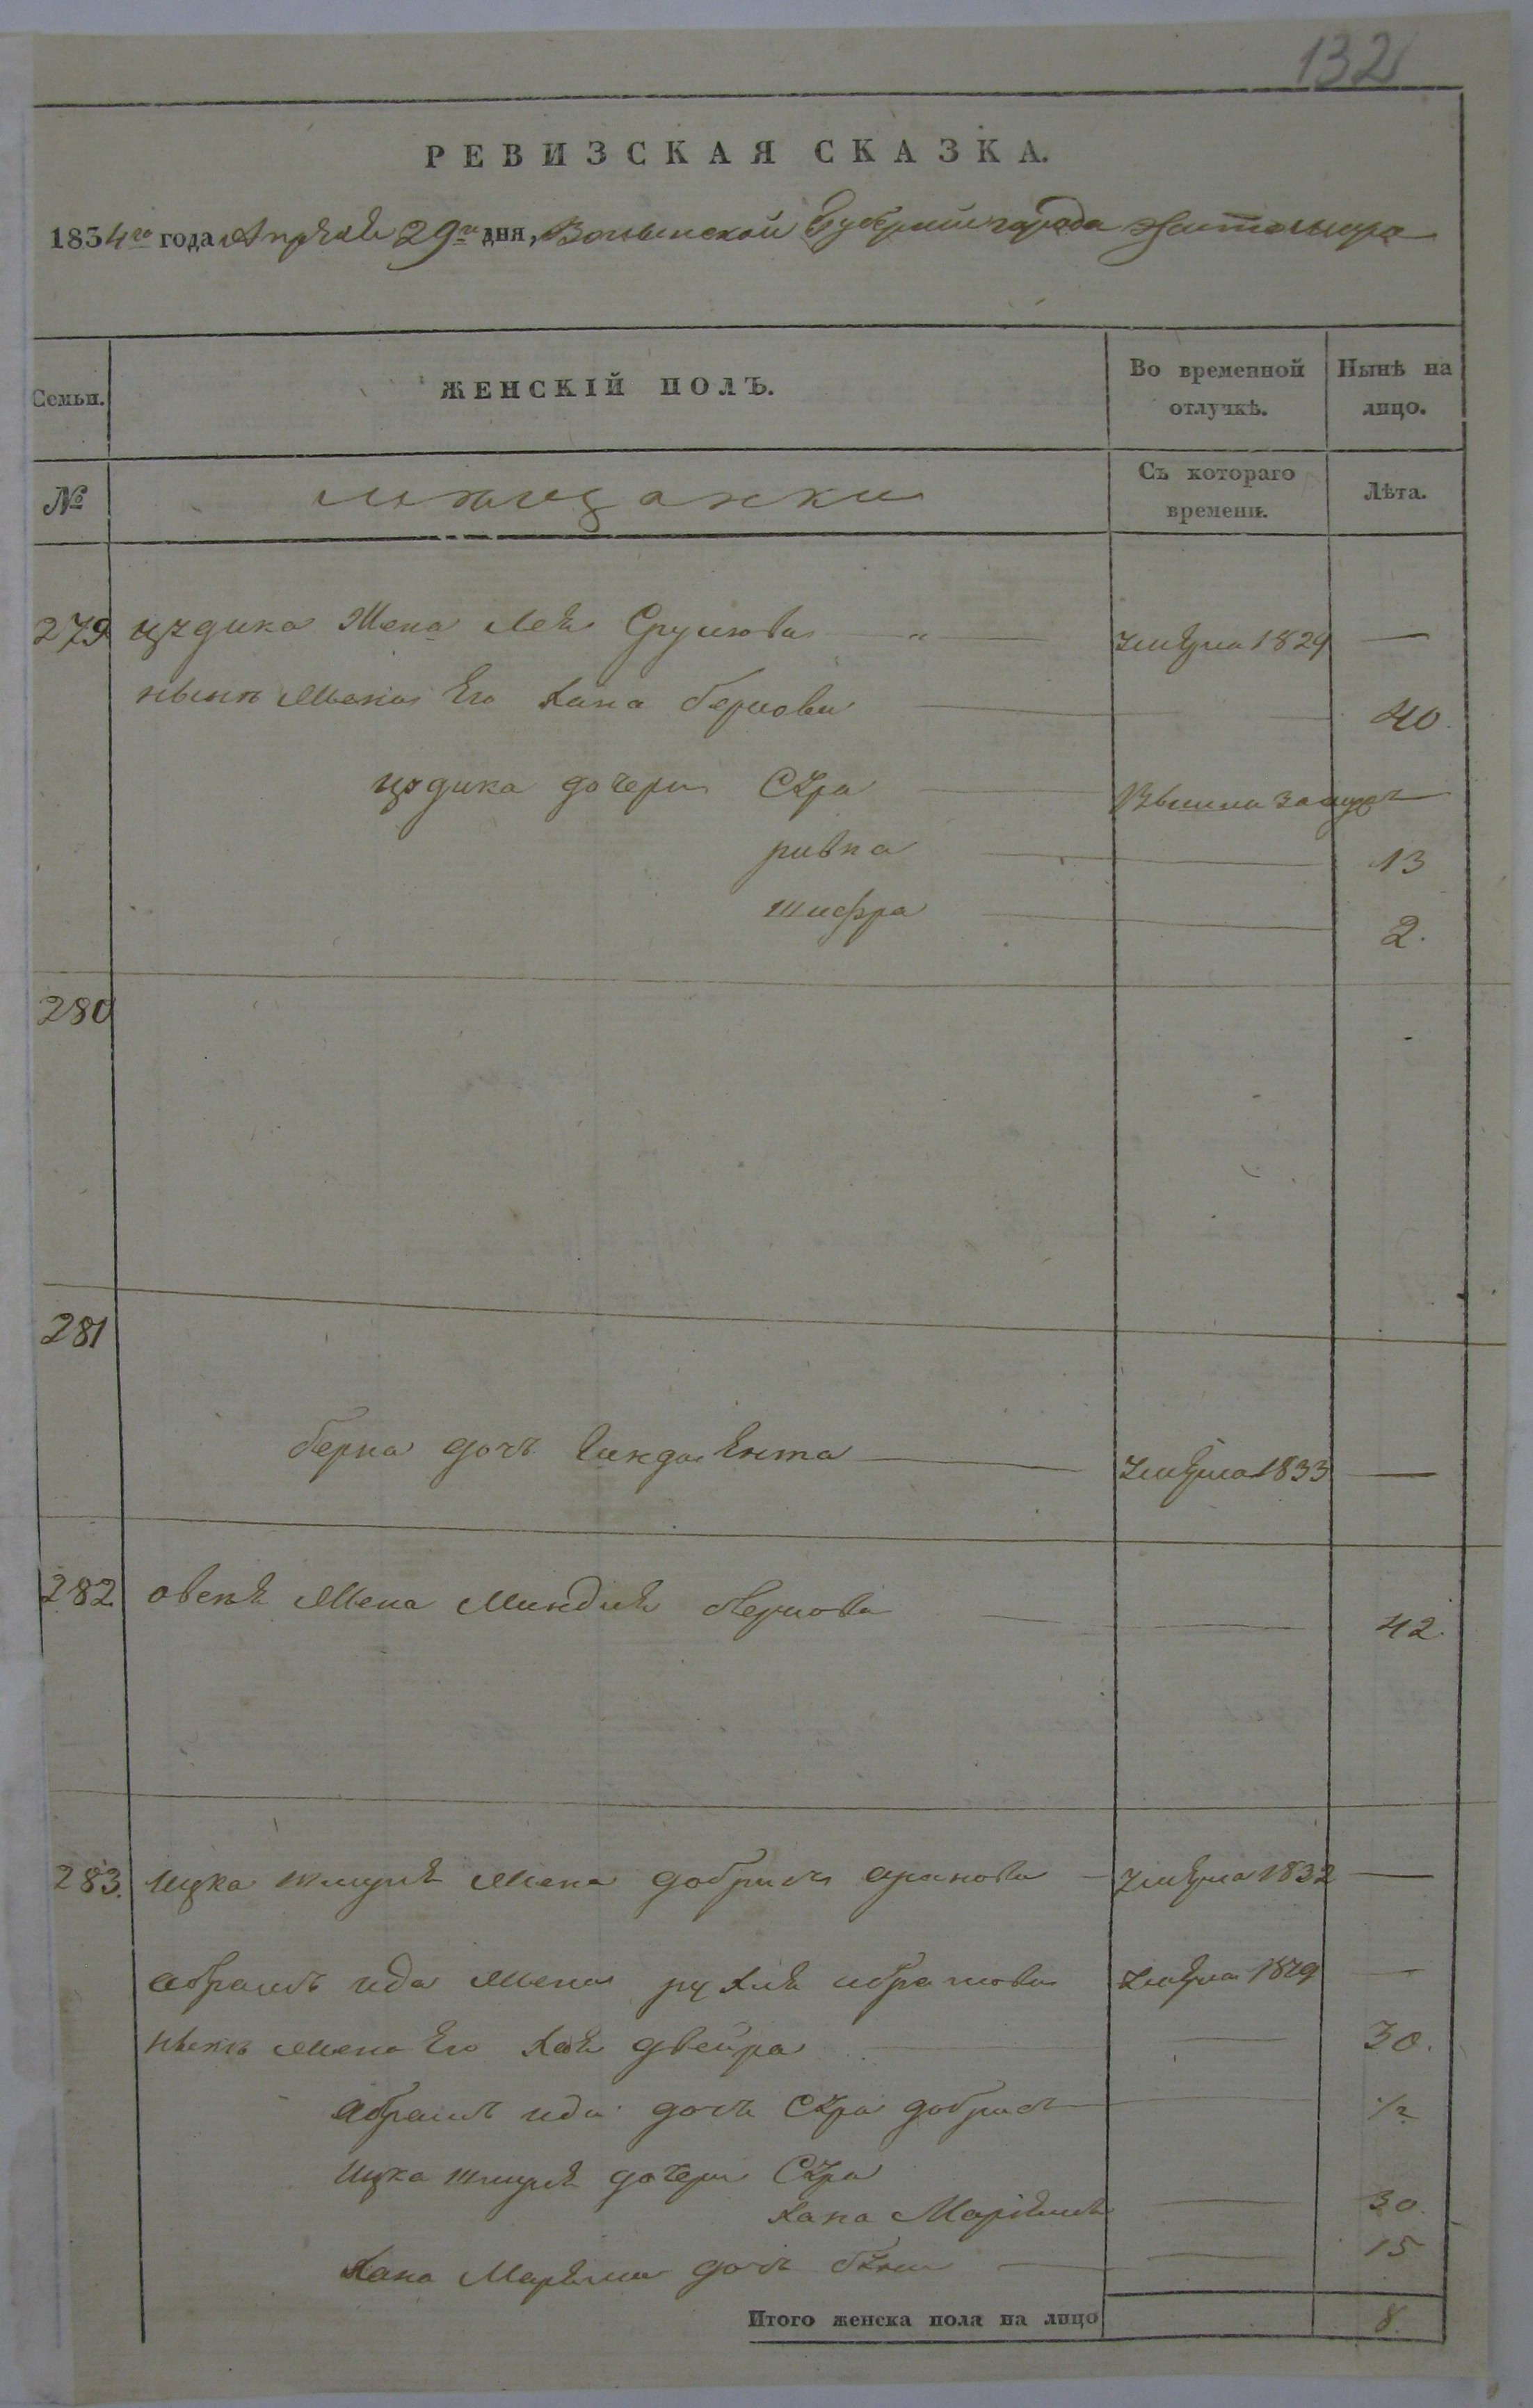 132
РЕВИЗСКАЯ СКАЗКА.
1834го года Апреля 29го дня, Волынской Губернии города Житомира
Семьи. ЖЕНСКІЙ ПОЛЪ. Во временной отлучкѣ. Нынѣ на лицо.
№ мещанки Съ котораго времени. Лѣта.
279 цудика Жена Лея Сруліова — " — умерла 1829 —
нынѣ Жена Его Хана беркова 40.
цудика дочери Сура Вышла замуж
ривка 13
шифра 2.
280
281
берка дочь Гинда Ента умерла 1833 —
282 овсея Жена Миндля беркова 42.
283. Ицка шмуля Жена добрись аронова умерла 1832 —
абрамъ ида Жена рухля абрамова умерла 1829 —
нынѣ жена Его Хая двейра 30.
абрамъ иди дочь Сура добрись 1/2
Ицка шмуля дочери Сура
Хана Маріемъ 30.
Хана Маріемъ дочь 15
Итого женска пола на лицо 8.